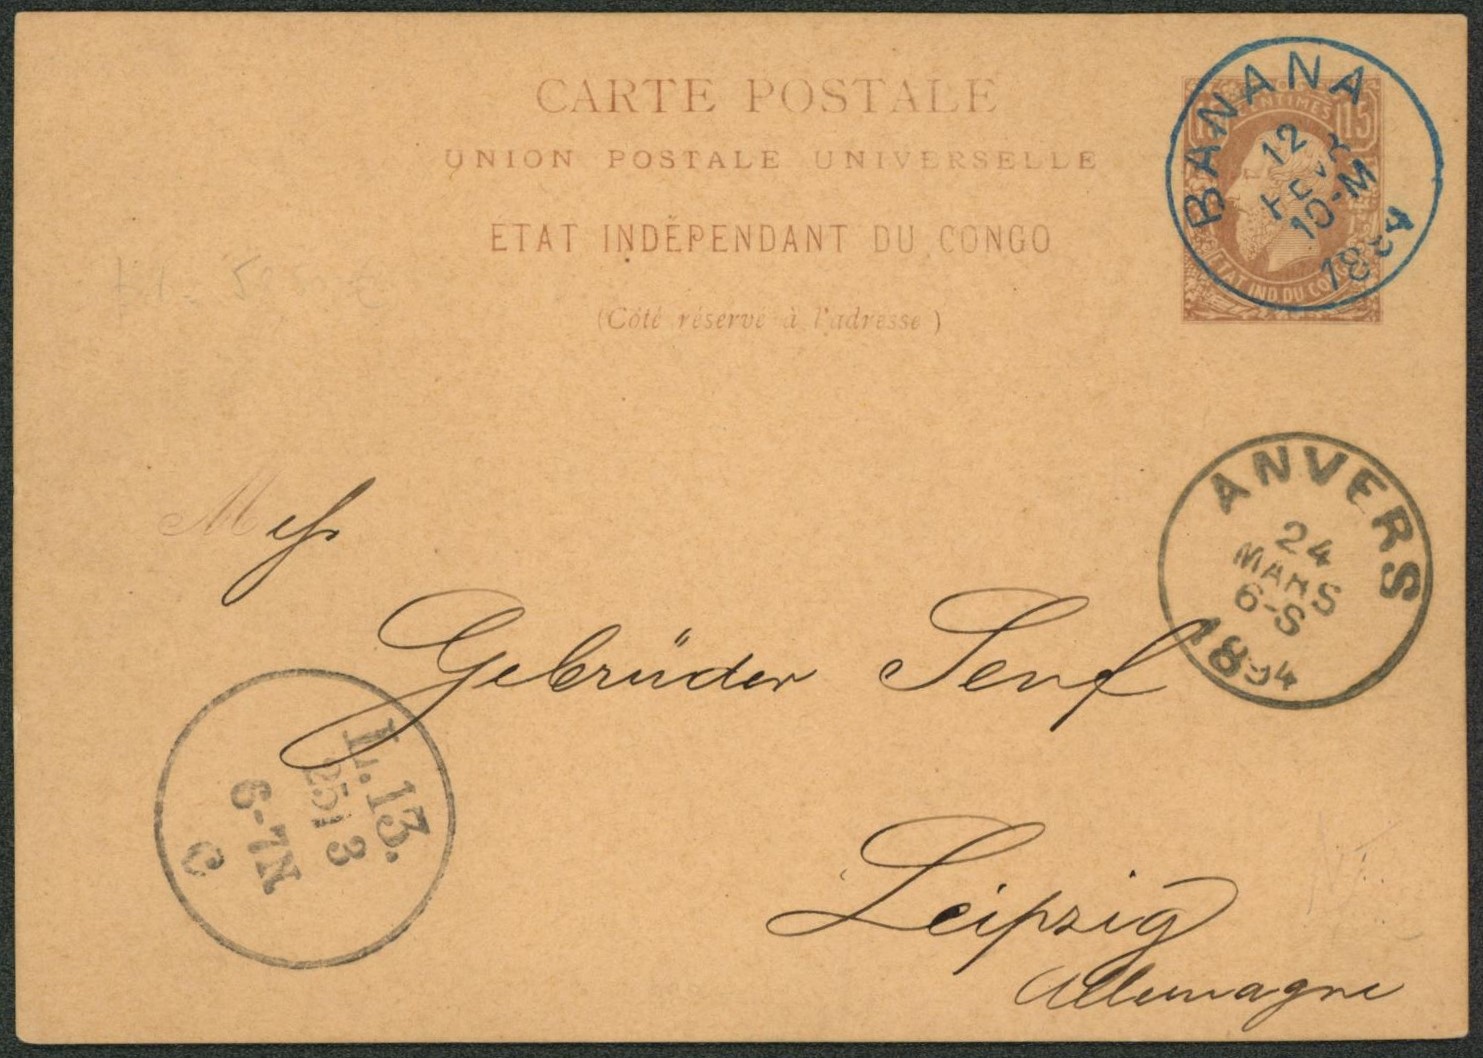 CARTE POSTALE
UNION POSTALE UNIVERSELLE
ETAT INDÉPENDANT DU CONGO
(Côté réservé à l'adresse)
15
CENTIMES
ETAT IND. DU CONGO
BANANA
12
FEVR
10-M
ANVERS
24
MARS
6-S
1894
Mess
Gebrüder Senf
Leipzig
Allemagne
L. 13.
25 3
6-7N
c